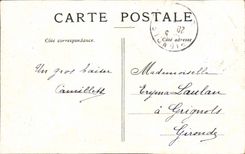 CARTE POSTALE
Côté correspondance.
Côté adresse
Un gros baiser
Camillette
Mademoiselle
Laulan
à Grignols
Gironde